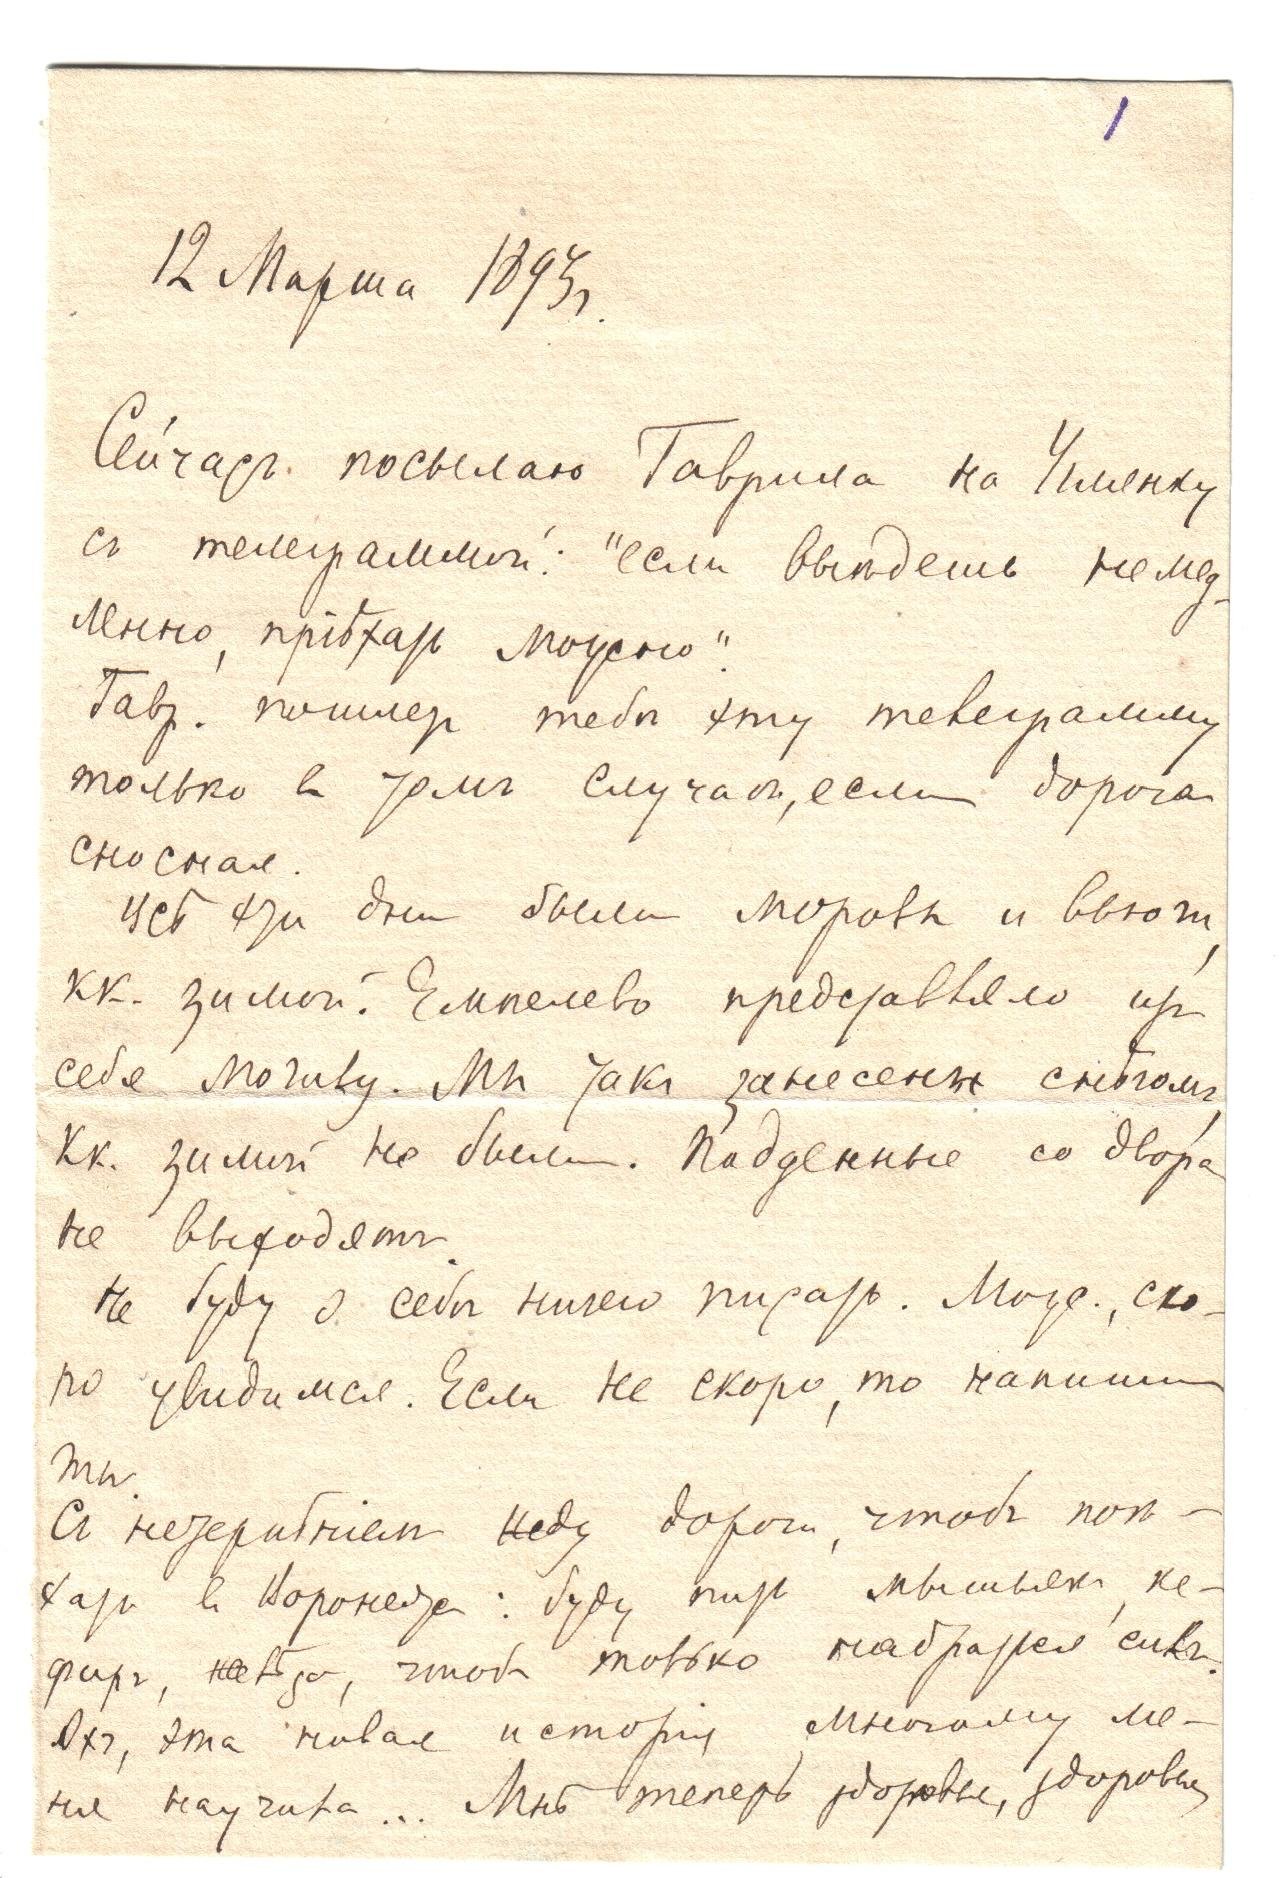 1
12 Марта 1893г.
Сейчасъ посылаю Гаврила на Уманку
съ телеграммой: "если выѣдешь немед-
ленно, пріѣхать можно".
Гавр. пошлетъ тебѣ эту телеграмму
только въ томъ случаѣ, если дорога
сносная.
Всѣ эти дни были морозы и вьюги,
кк. зимой. Емпелево представляло изъ
себя могилу. Мы такъ занесены снѣгомъ,
кк. зимой не были. Поденные со двора
не выходятъ.
Не буду о себѣ ничего писать. Може., ско-
ро увидимся. Если не скоро, то напиши
ты.
Съ нетерпѣніемъ жду дороги, чтобъ поѣ-
хать въ Воронежъ: буду пить мышьякъ, ке-
фиръ, чтобъ только набраться силъ.
Охъ, эта новая исторія многому ме-
ня научила... Мнѣ теперь здоровье, здоровье